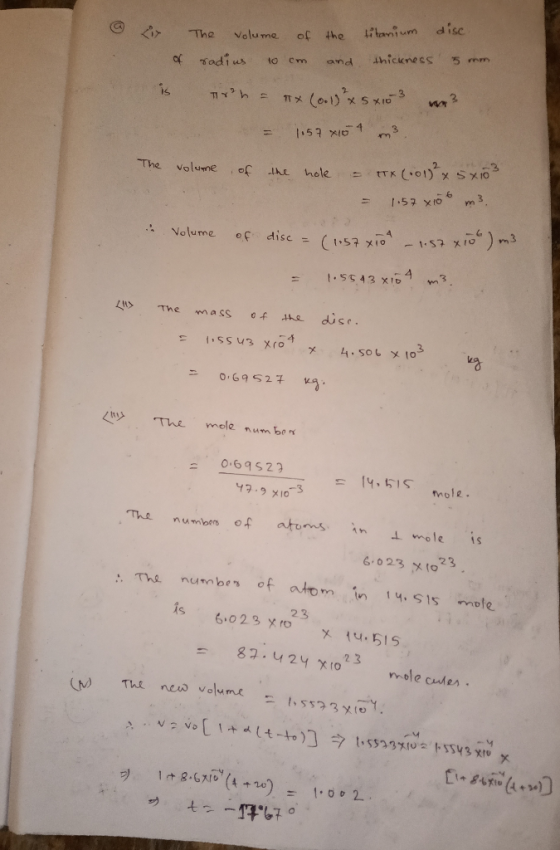 (a) <i> The volume of the titanium disc
of radius 10 cm and thickness 5 mm
is πr²h = π × (0.1)² × 5 × 10⁻³ m³
= 1.57 × 10⁻⁴ m³.
The volume of the hole = π × (.01)² × 5 × 10⁻³
= 1.57 × 10⁻⁶ m³.
∴ Volume of disc = (1.57 × 10⁻⁴ - 1.57 × 10⁻⁶) m³
= 1.5543 × 10⁻⁴ m³.
<ii> The mass of the disc.
= 1.5543 × 10⁻⁴ × 4.506 × 10³ kg
= 0.69527 kg.
<iii> The mole number
= 0.69527 / 47.9 × 10⁻³ = 14.515 mole.
The number of atoms in 1 mole is
6.023 × 10²³.
∴ The number of atom in 14.515 mole
is 6.023 × 10²³ × 14.515
= 87.424 × 10²³ molecules.
(iv) The new volume = 1.5573 × 10⁻⁴.
∴ v = v₀[1 + α(t-t₀)] ⇒ 1.5573 × 10⁻⁴ = 1.5543 × 10⁻⁴ ×
[1 + 8.6 × 10⁻⁴ (t + 20)]
⇒ 1 + 8.6 × 10⁻⁴ (t + 20) = 1.002.
⇒ t = -17.67°